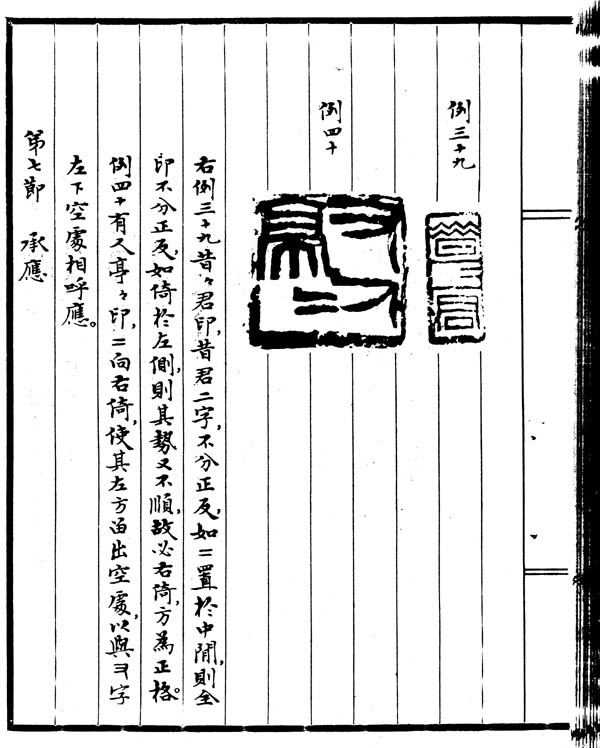 例三十九
例四十
右例三十九昔々君印,昔君二字,不分正反,如二置於中間,則全
印不分正反,如倚於左側,則其勢又不順,故必右倚,方為正格。
例四十有又亭々印,二向右倚,使其左方留出空處,以與ヨ字
左下空處相呼應。
第七節 承應